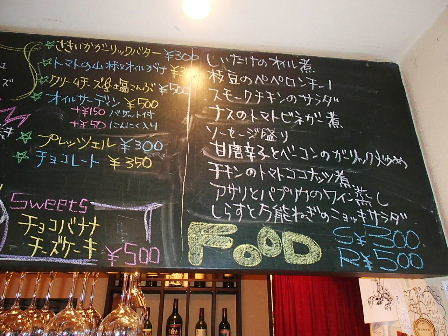 さきいかガーリックバター ¥300
クリームチーズ
オイルサーデン ¥500
+¥150 バゲット付
+¥50 にんにく入り
プレッツェル ¥300
チョコレート ¥350
Sweets
チョコバナナ
チーズケーキ
¥500
しいたけのオイル煮
枝豆のペペロンチーノ
スモークチキンのサラダ
ナスのトマトビネガー煮
ソーセージ盛り
甘唐辛子とベーコンのガーリック炒め
チキンのトマトココナッツ煮
アサリとパプリカのワイン蒸し
しらすと万能ねぎのシャキシャキサラダ
FOOD
S¥300
R¥500